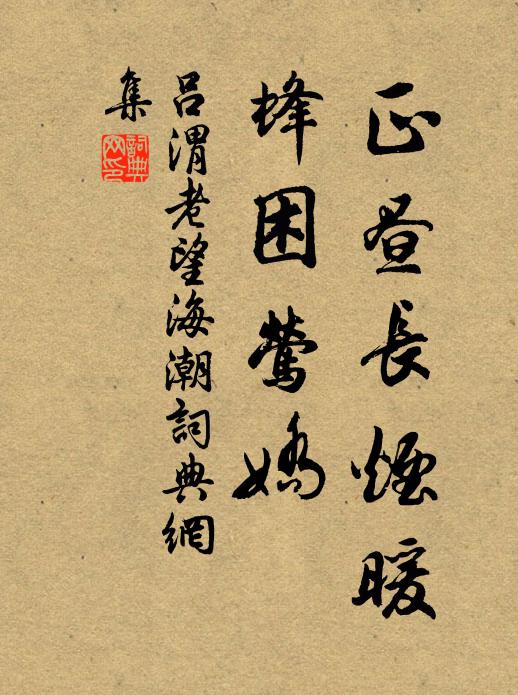 正昼長煙暖
蜂困鶯嬌
吕渭老望海潮詞典網
集
詞典
网印